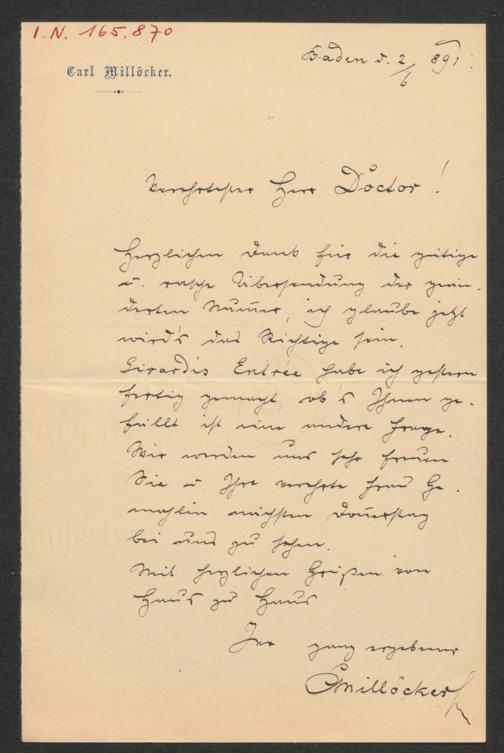 I.N. 165.870
Carl Millöcker.
Baden d. 2/6 891.
Verehrtester Herr Doctor!
Herzlichen Dank für die gütige
u. rasche Übersendung der geän-
derten Numer, ich glaube jetzt
wird's das Richtige sein.
Girardis Entrée habe ich gestern
fertig gemacht ob's Ihnen ge-
fällt ist eine andere Frage.
Wir werden uns sehr freuen
Sie u. Ihre verehrte Frau Ge-
mahlin nächsten Donerstag
bei uns zu sehen.
Mit herzlichen Grüßen von
Haus zu Haus
Ihr ganz ergebener
CMillöcker